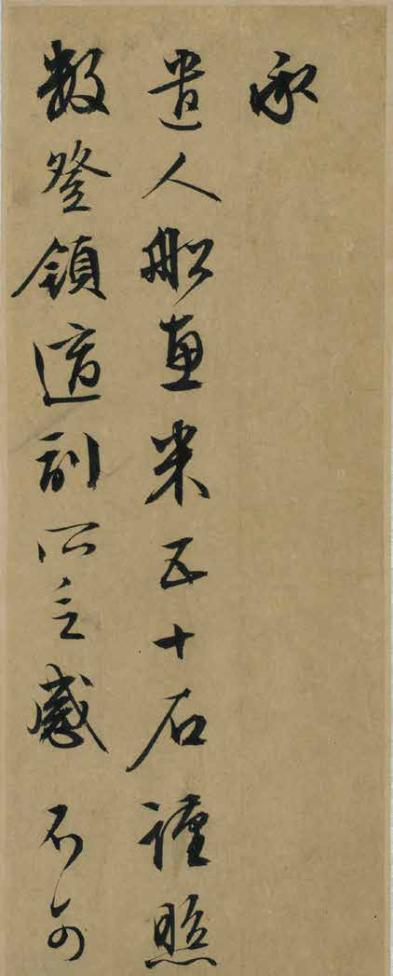 承
遣人船惠米五十石謹照
數登領適副所乏感不可